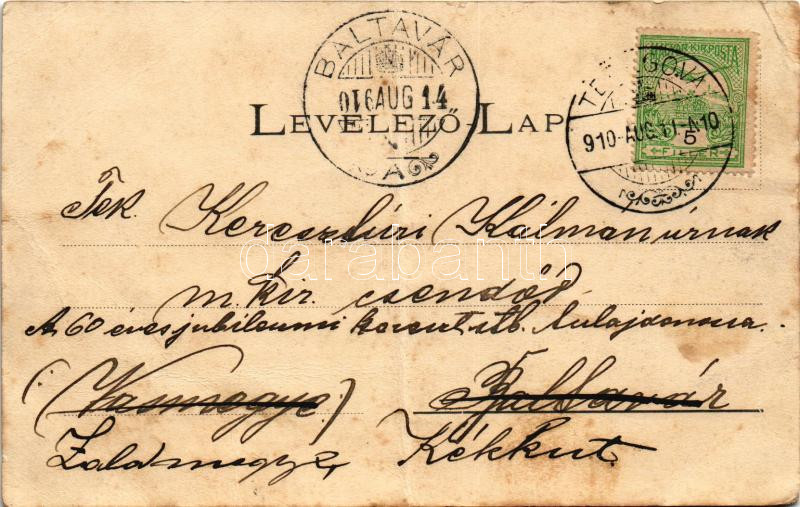 BALTAVÁR
910 AUG 14
A
MAGYAR KIR. POSTA
5
FILLÉR
910 AUG 11
LEVELEZŐ-LAP
Tek. Keresztúri Kálmán úrnak
m. kir. csendőr
A 60 éves jubileumi kereszt stb. tulajdonosa.
(Vasmegye) Baltavár
Zalamegye, Kékkut.
darabanth